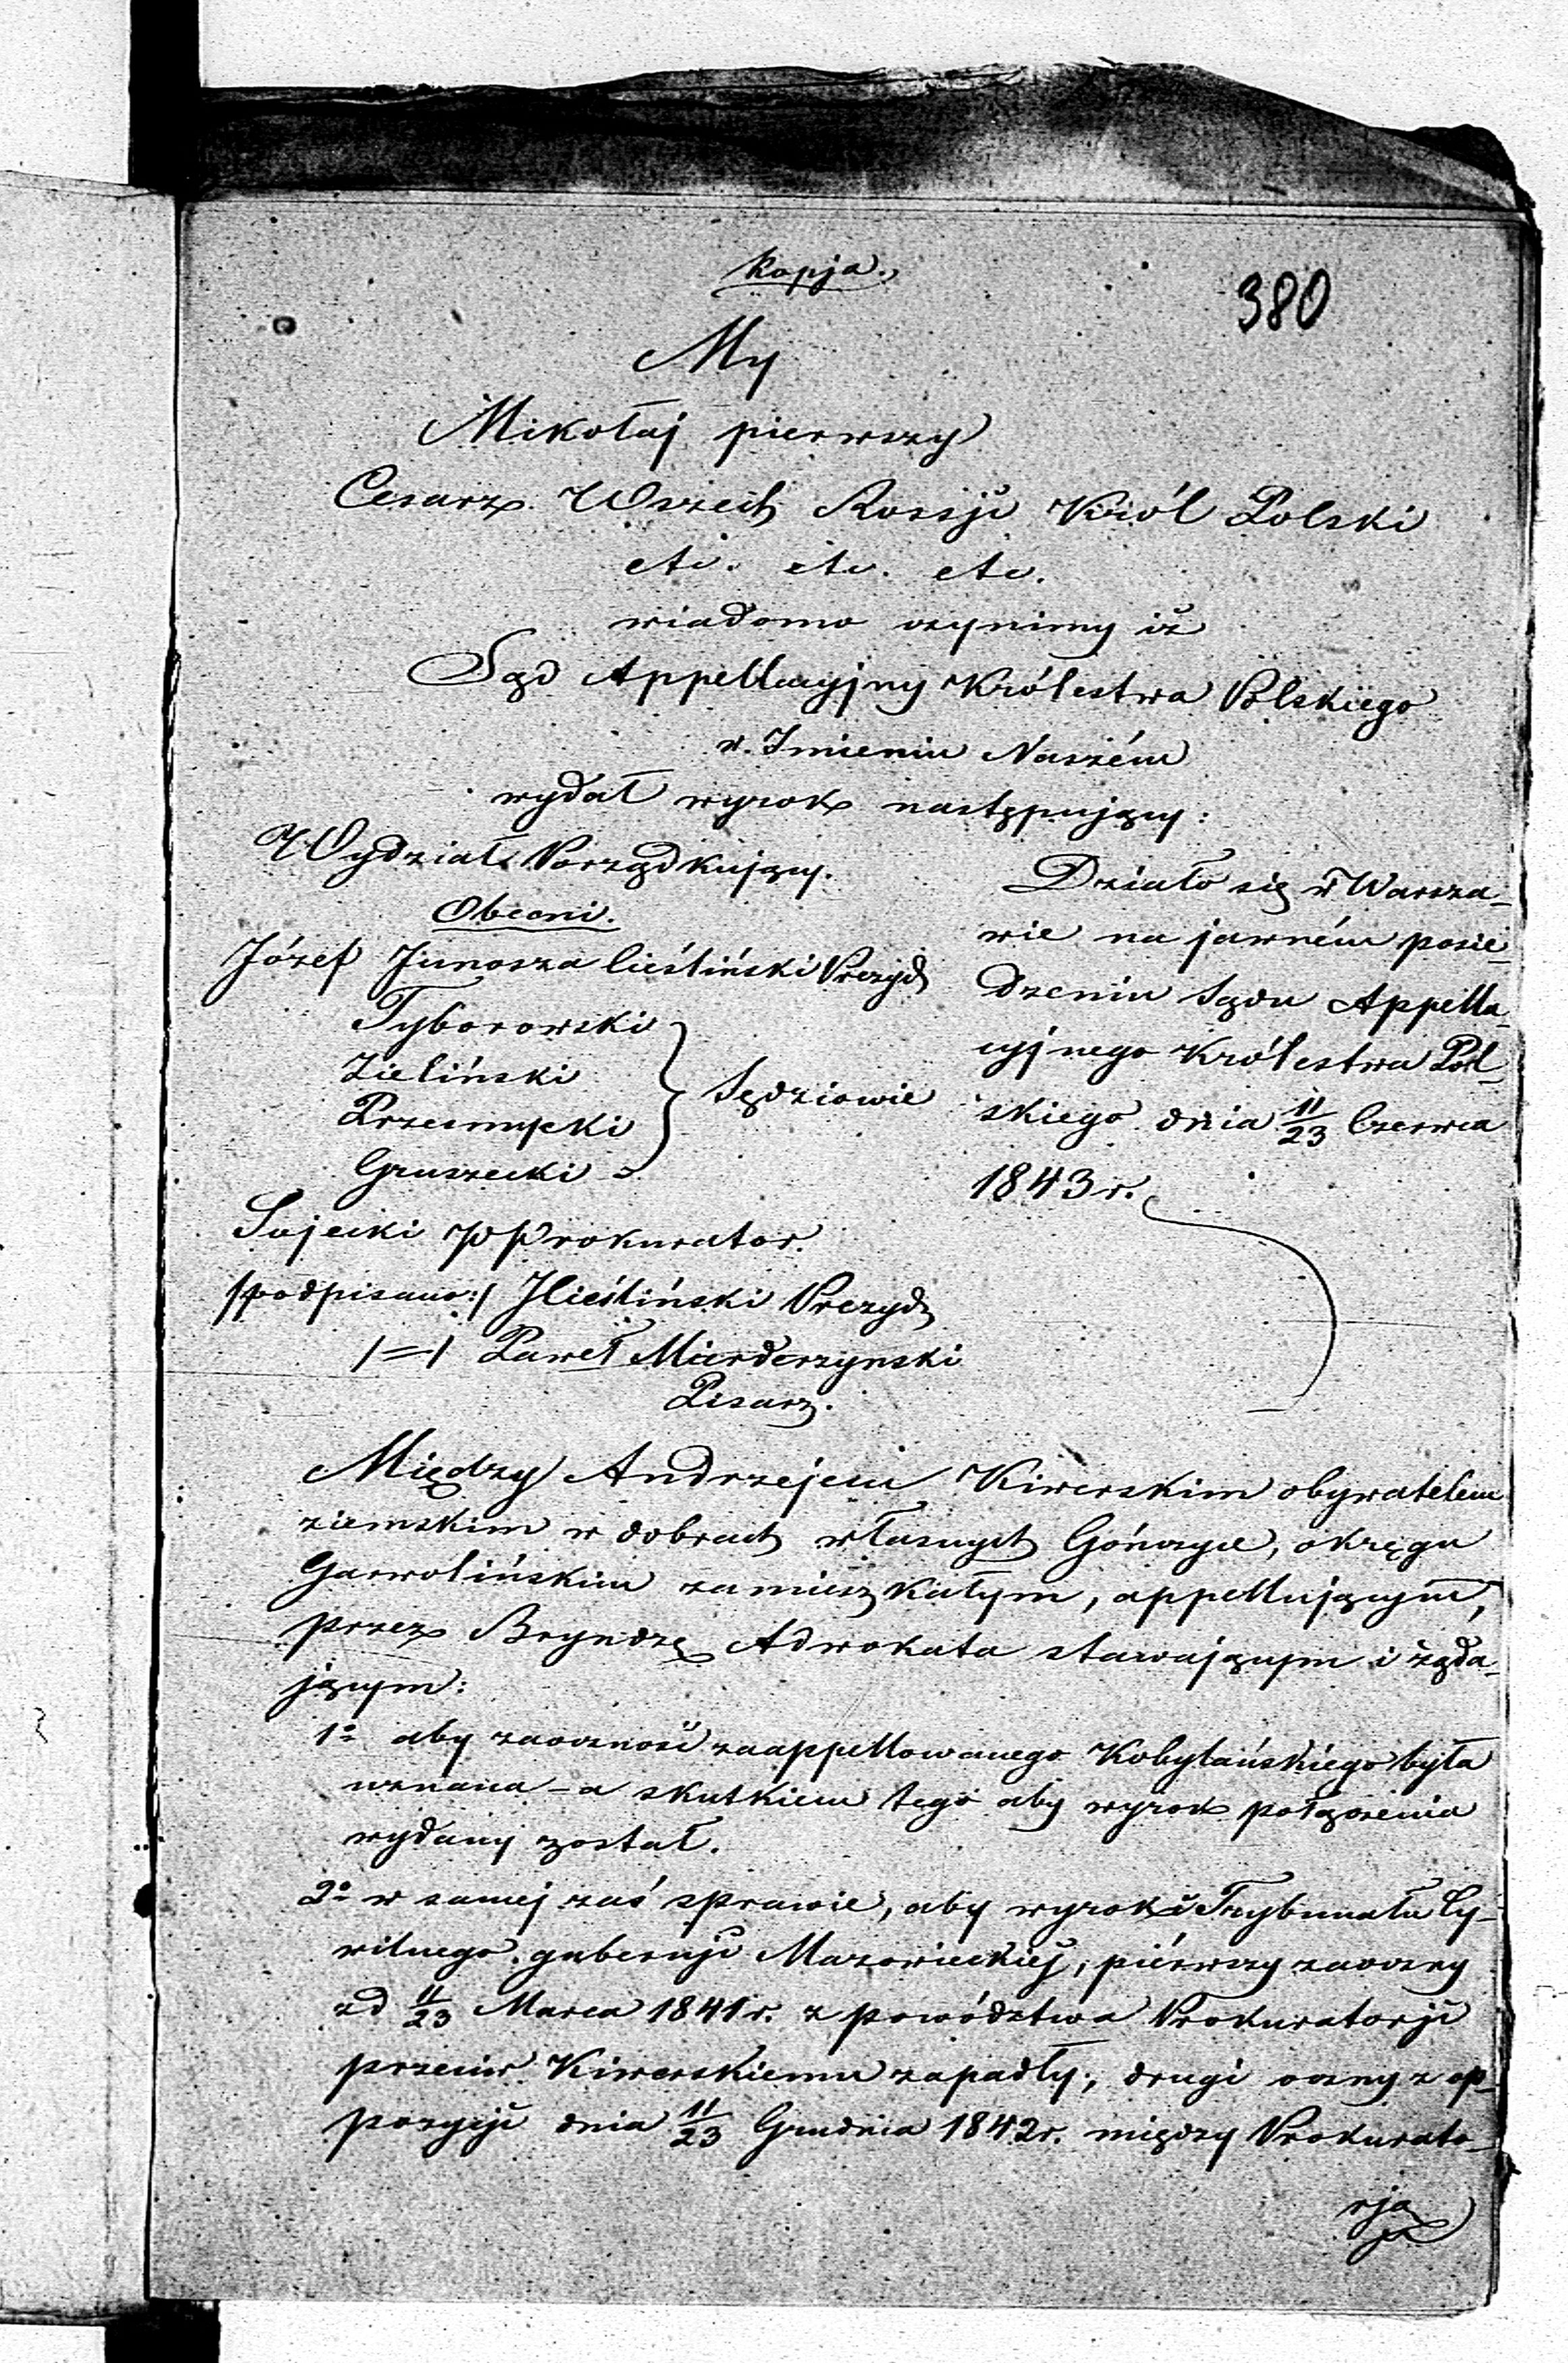 Kopja.
380
My
Mikołaj pierwszy
Cesarz Wszech Rossji Król Polski
etc. etc. etc.
wiadomo czynimy iż
Sąd Appellacyjny Królestwa Polskiego
w Imieniu Naszém
wydał wyrok następujący:
Wydział Porządkujący.
Obecni.
Józef Junosza Cieśliński Prezyd
Tyborowski
Zieliński
Przesmycki
Gruszecki
Sędziowie
Sujecki pProkurator.
/podpisano:/ JCieśliński Prezyd
/=/ Paweł Mierderzynski
Pisarz.
Działo się w Warsza-
wie na jawném posie-
dzeniu Sądu Appella-
cyjnego Królestwa Pol-
skiego dnia 11/23 Czerwca
1843 r.
Między Andrzejem Kiwerskim obywatelem
ziemskim w dobrach własnych Gończyce, okręgu
Garwolińskim zamieszkałym, appellującym,
przez Bryndzę Adwokata stawającym i żąda-
jącym:
1o aby zaoczność zaappellowanego Kobylańskiego była
uznana – a skutkiem tego aby wyrok połączenia
wydany został.
2o w samej zaś sprawie, aby wyroki Trybunału Cy-
wilnego gubernji Mazowieckiéj, piérwszy zaoczny
zd 11/23 Marca 1841 r. z powództwa Prokuratorji
przeciw Kiwerskiemu zapadły, drugi oczny z op-
pozycji dnia 11/23 Grudnia 1842 r. między Prokurato-
rją